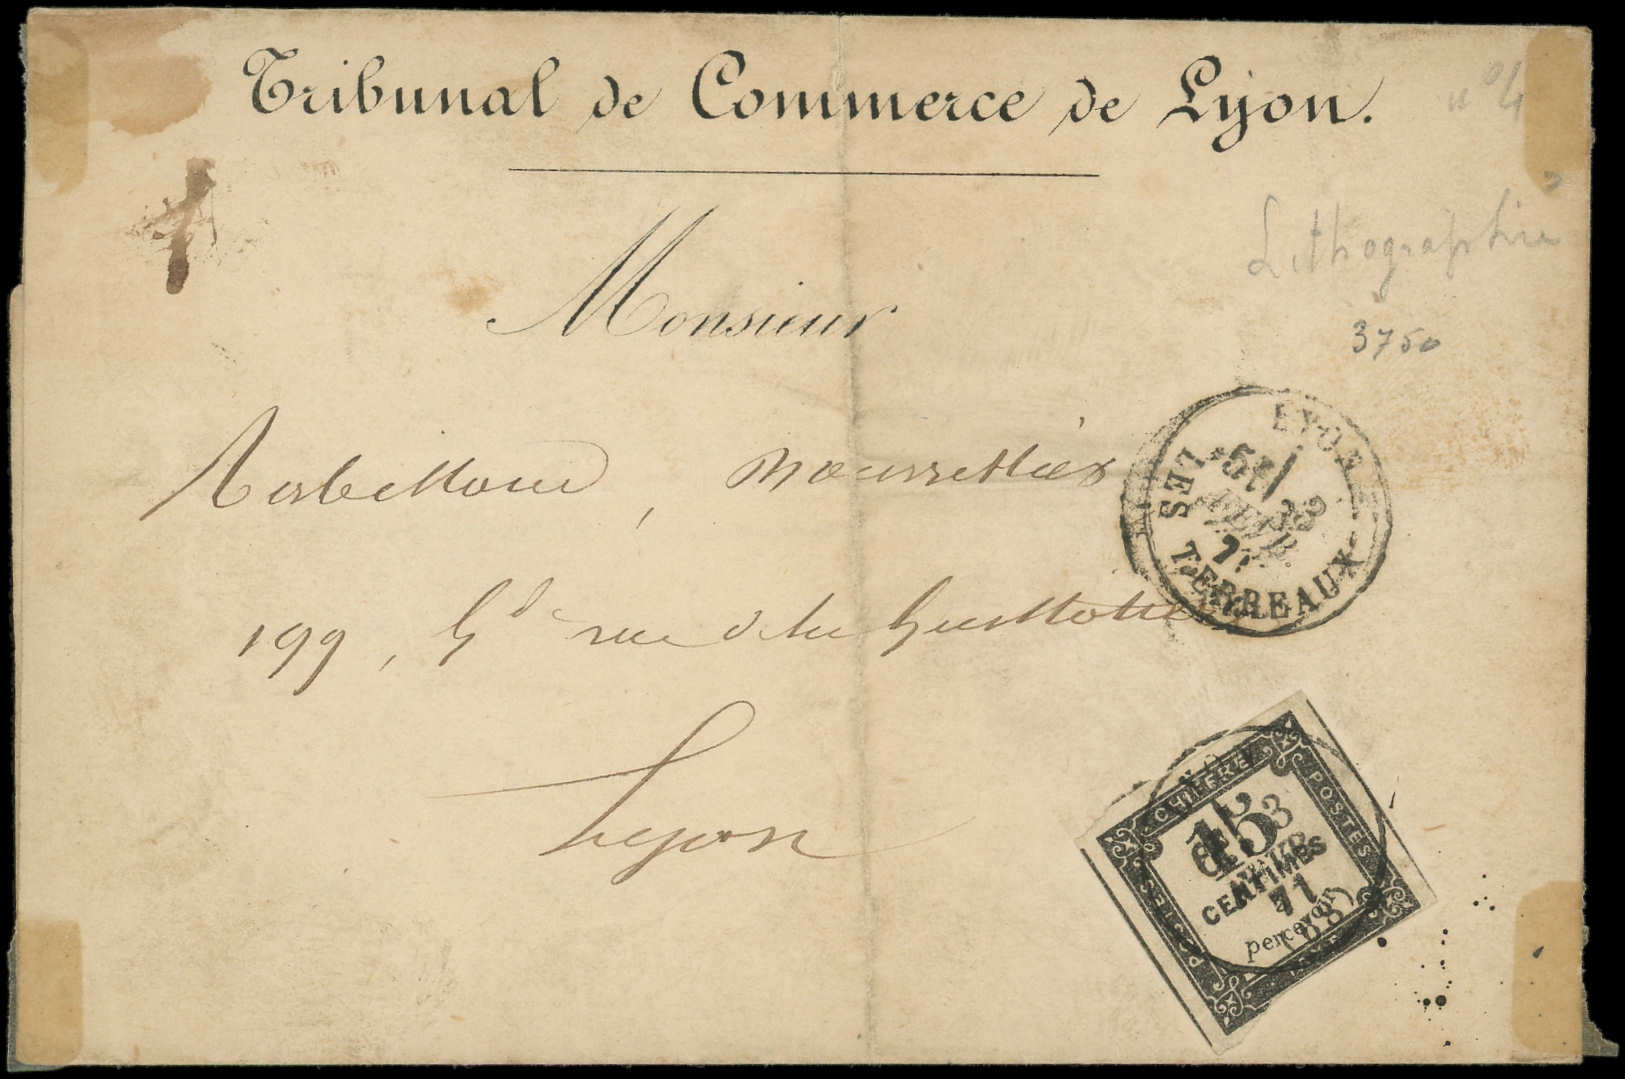 Tribunal de Commerce de Lyon.
n° 4
Lithographie
3750
Monsieur
199, Gd rue de la Guillotière
Lyon
LYON
5E/
71
LES TERREAUX
CHIFFRE
POSTES
15
CENTIMES
à
percevoir
3
71
(68)